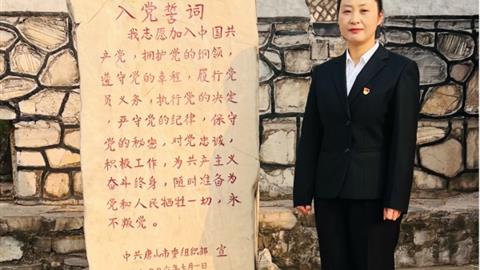 入党誓词
我志愿加入中国共
产党，拥护党的纲领，
遵守党的章程，履行党
员义务，执行党的决定，
严守党的纪律，保守
党的秘密，对党忠诚，
积极工作，为共产主义
奋斗终身，随时准备为
党和人民牺牲一切，永
不叛党。
中共唐山市委组织部 宣
年七月一日